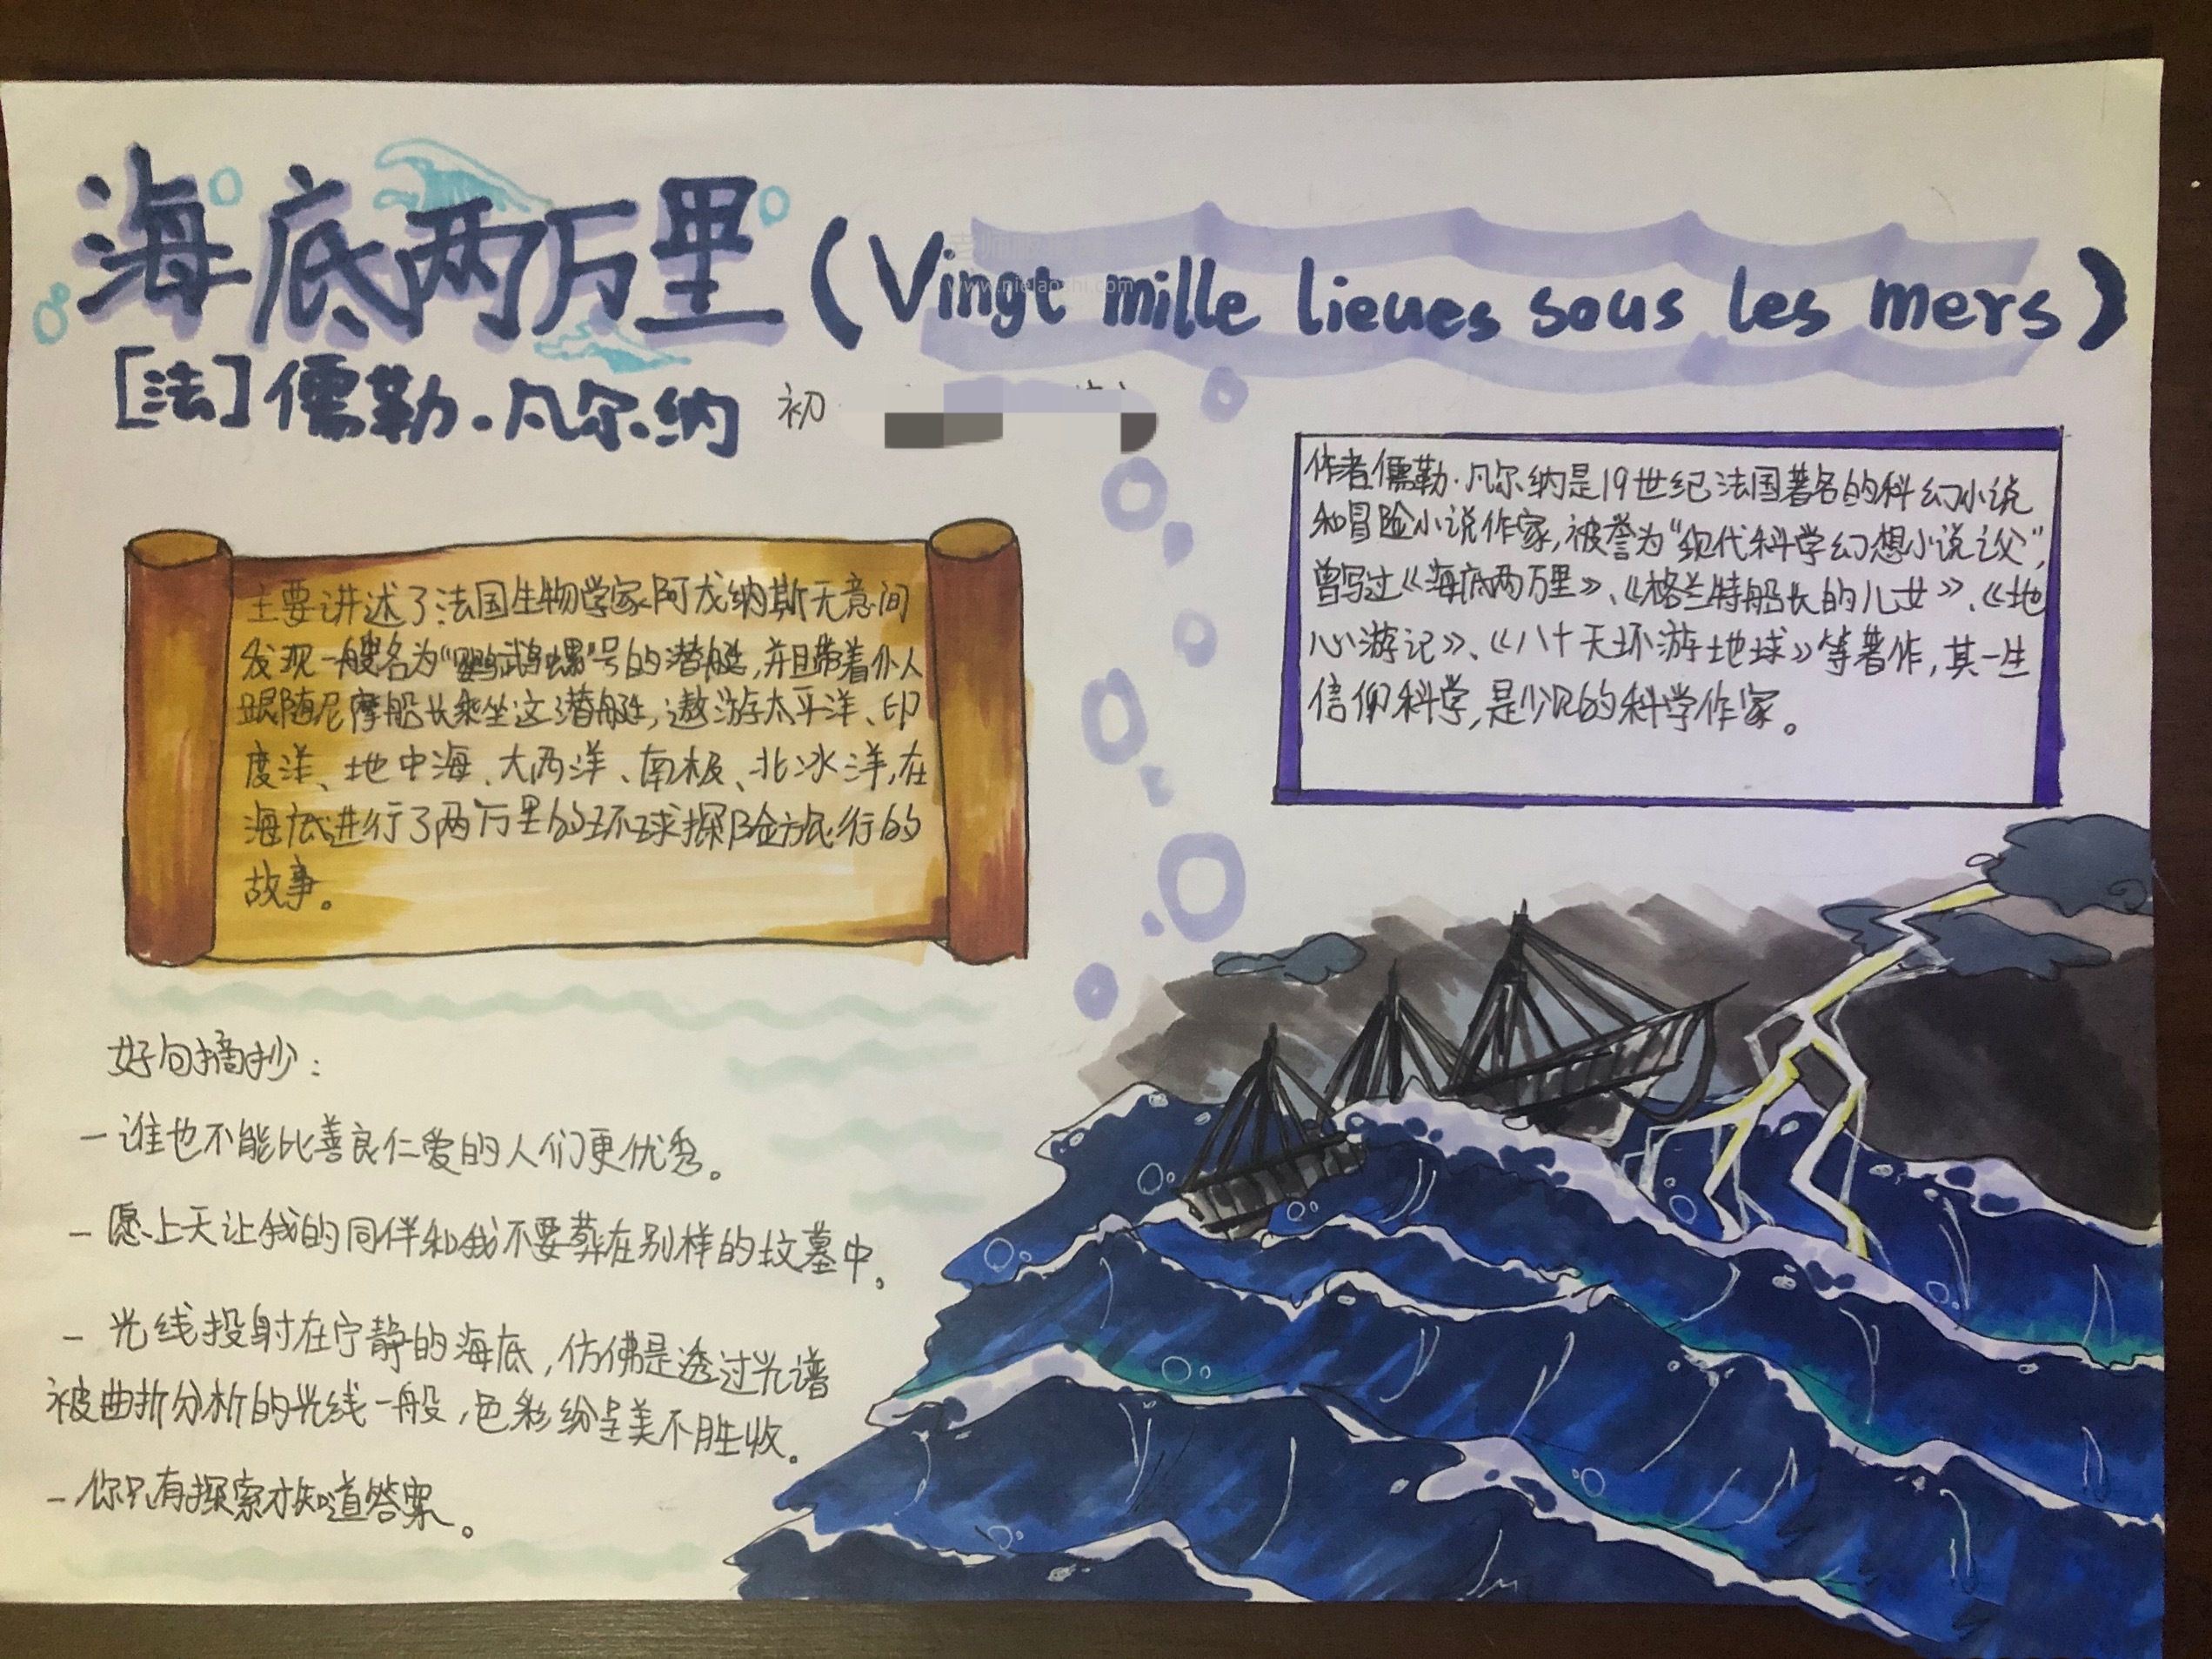 海底两万里(Vingt mille lieues sous les mers)
[法]儒勒·凡尔纳 初
作者儒勒·凡尔纳是19世纪法国著名的科幻小说
和冒险小说作家,被誉为“现代科学幻想小说之父”,
曾写过《海底两万里》、《格兰特船长的儿女》、《地
心游记》、《八十天环游地球》等著作,其一生
信仰科学,是少见的科学作家。
主要讲述了法国生物学家阿龙纳斯无意间
发现一艘名为“鹦鹉螺”号的潜艇,并且带着仆人
跟随尼摩船长乘坐这潜艇,遨游太平洋、印
度洋、地中海、大西洋、南极、北冰洋,在
海底进行了两万里的环球探险旅行的
故事。
好句摘抄:
-谁也不能比善良仁爱的人们更优秀。
-愿上天让我的同伴和我不要葬在别样的坟墓中。
-光线投射在宁静的海底,仿佛是透过光谱
被曲折分析的光线一般,色彩纷呈美不胜收。
-你只有探索才知道答案。